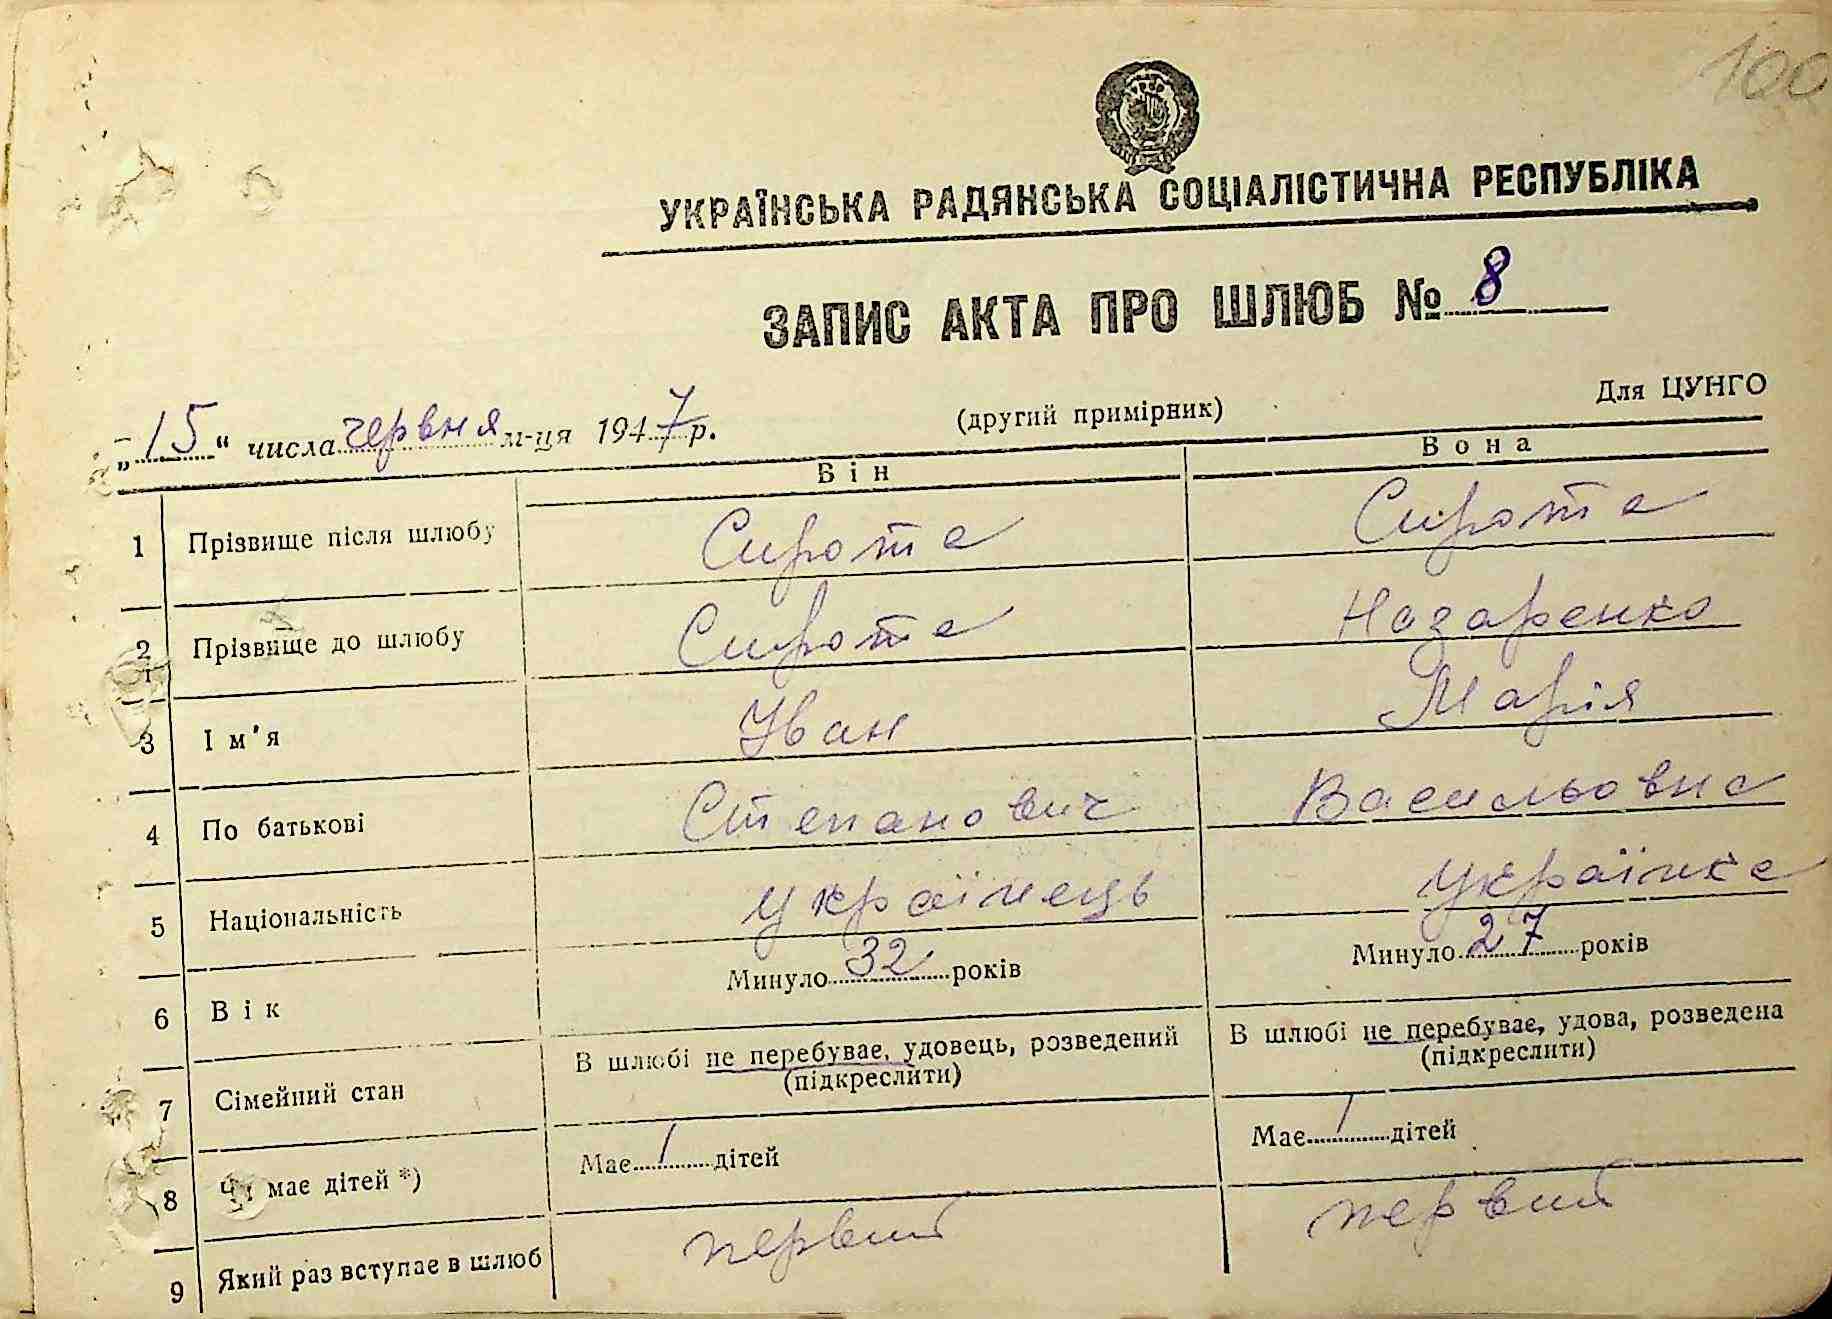 100
УКРАЇНСЬКА РАДЯНСЬКА СОЦІАЛІСТИЧНА РЕСПУБЛІКА
ЗАПИС АКТА ПРО ШЛЮБ № 8
Для ЦУНГО
„15“ числа червня м-ця 1947 р. (другий примірник)
Він Вона
1 Прізвище після шлюбу Сирота Сирота
2 Прізвище до шлюбу Сирота Назаренко
3 Ім'я Іван Марія
4 По батькові Степанович Васильовна
5 Національність українець українка
6 Вік Минуло 32 років Минуло 27 років
7 Сімейний стан В шлюбі не перебуває, удовець, розведений В шлюбі не перебуває, удова, розведена
(підкреслити) (підкреслити)
8 Чи має дітей *) Має 1 дітей Має 1 дітей
9 Який раз вступає в шлюб первий первий